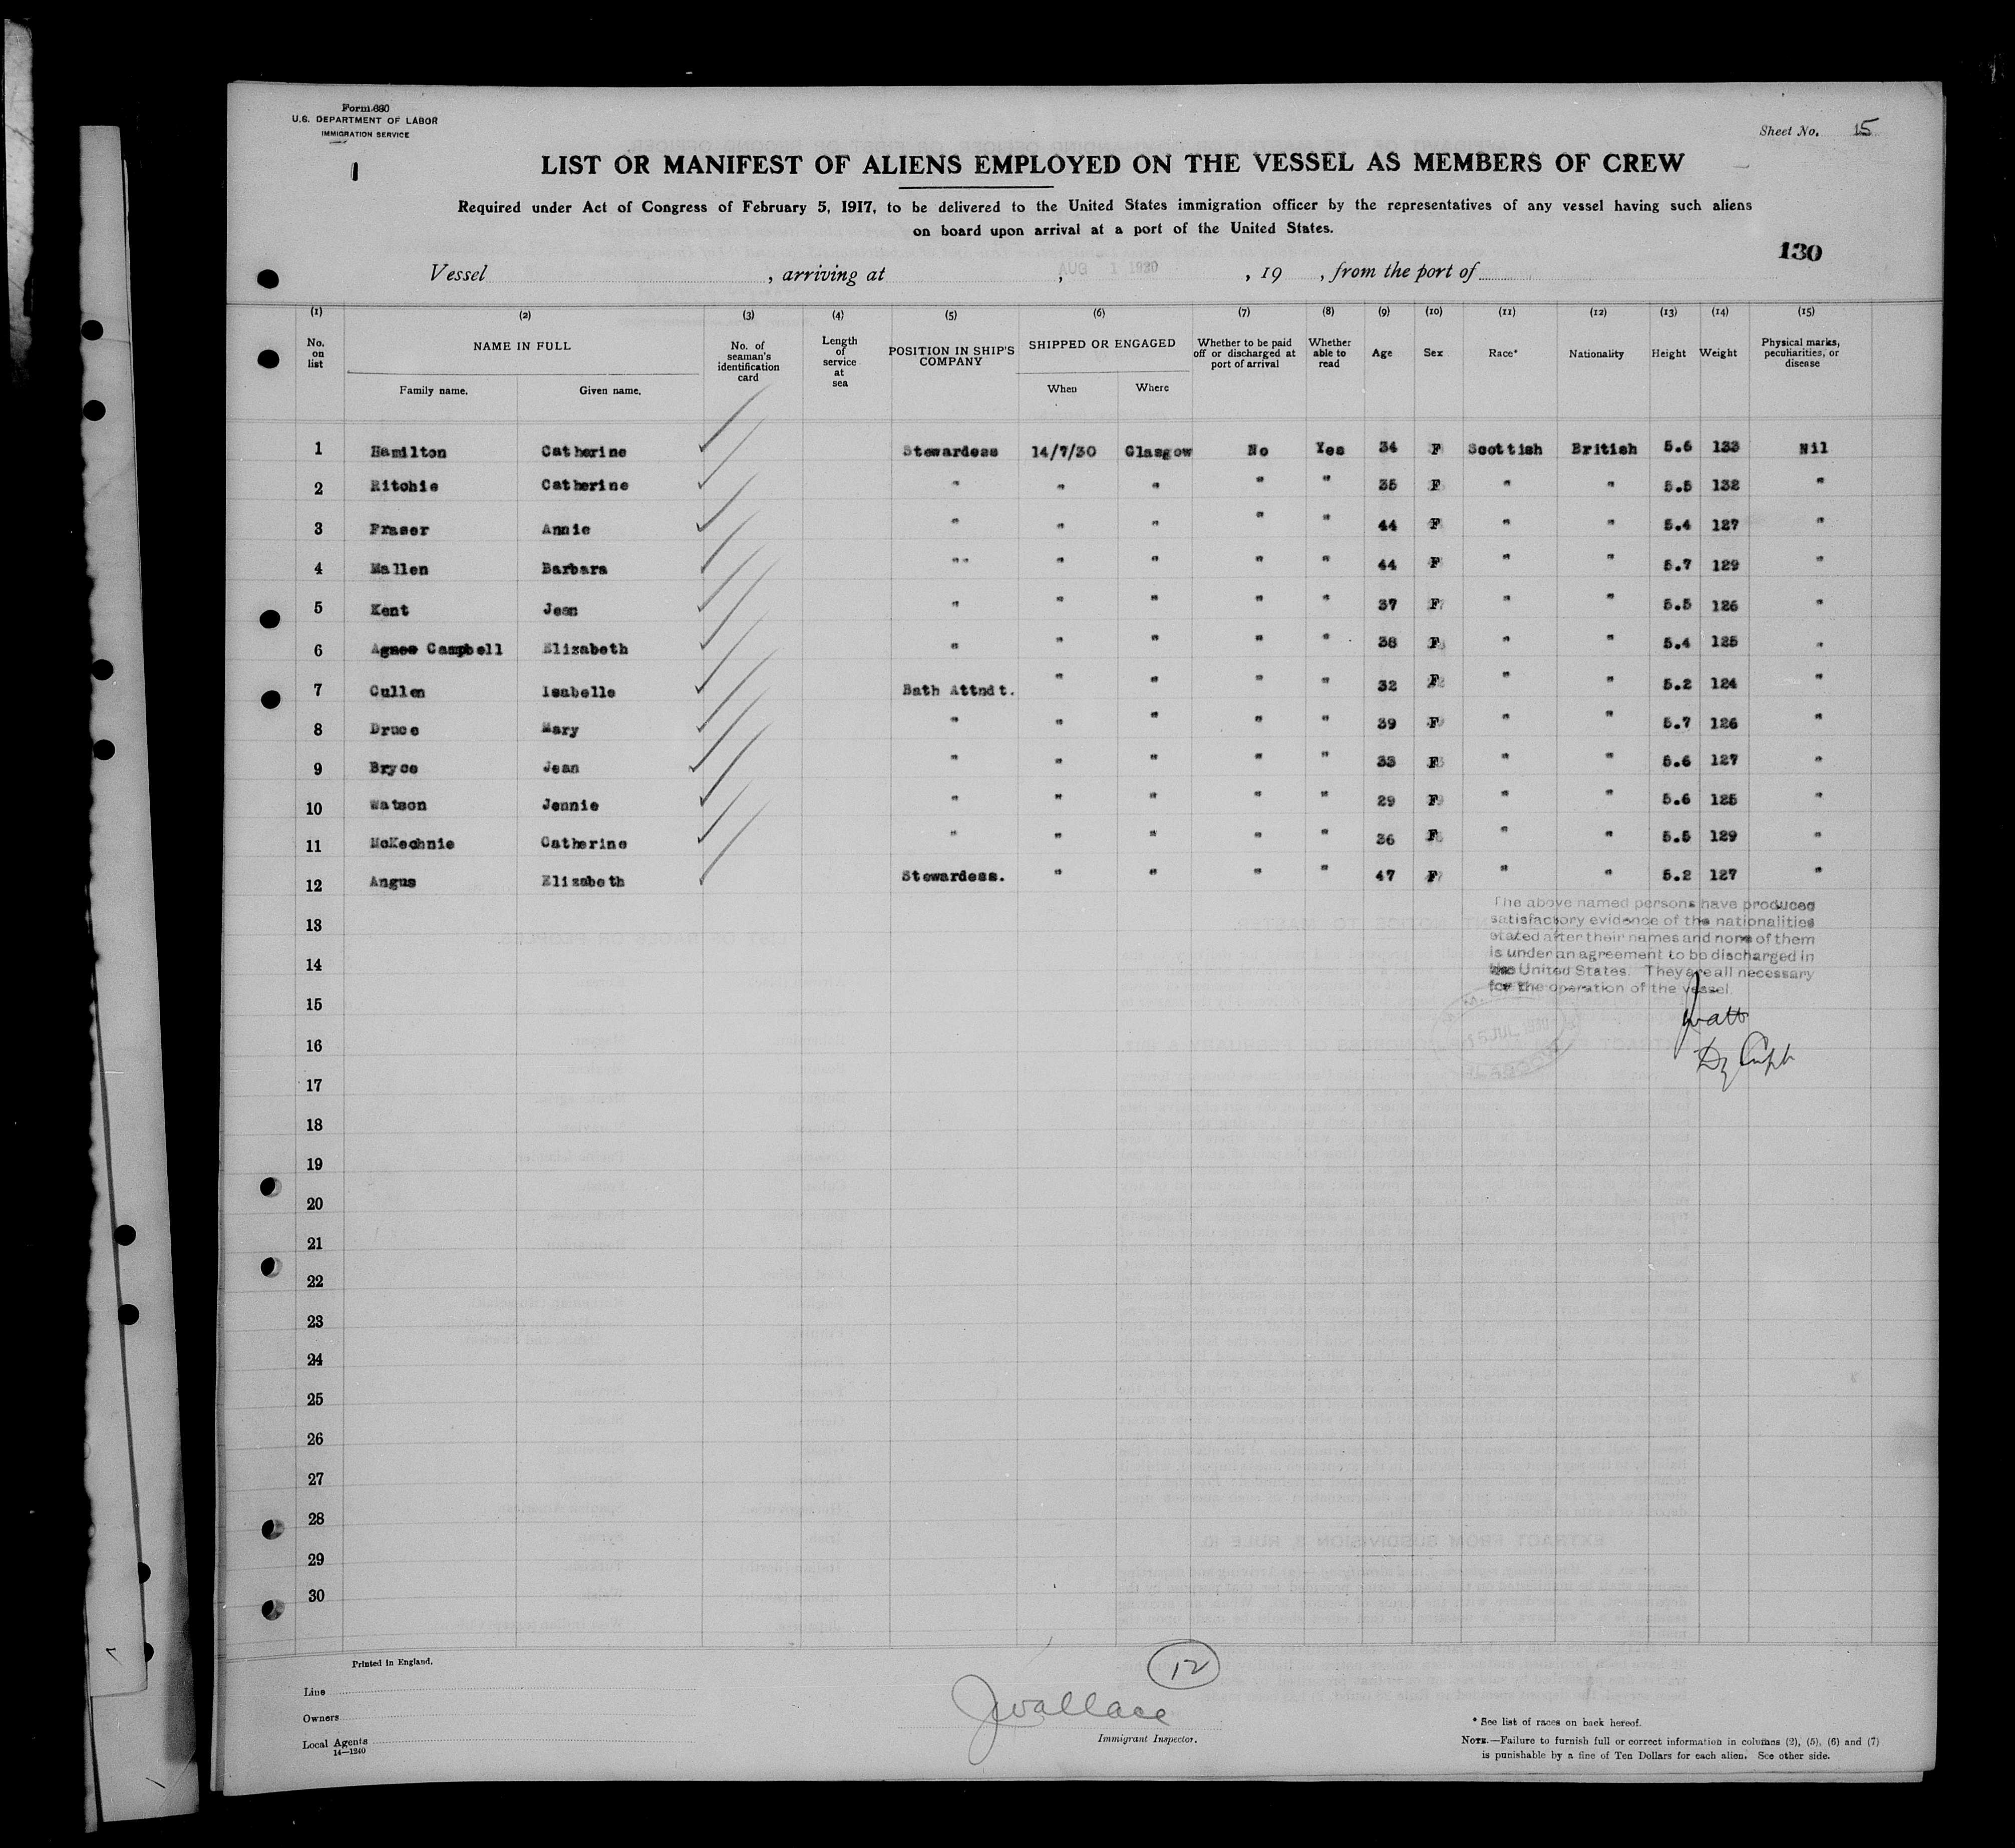 Form 680
U.S. DEPARTMENT OF LABOR
IMMIGRATION SERVICE
Sheet No. 15
LIST OR MANIFEST OF ALIENS EMPLOYED ON THE VESSEL AS MEMBERS OF CREW
Required under Act of Congress of February 5, 1917, to be delivered to the United States immigration officer by the representatives of any vessel having such aliens
on board upon arrival at a port of the United States.
130
Vessel , arriving at , AUG 1 1930 , 19 , from the port of
(1) (2) (3) (4) (5) (6) (7) (8) (9) (10) (11) (12) (13) (14) (15)
No. on list NAME IN FULL Family name. Given name. No. of seaman's identification card Length of service at sea POSITION IN SHIP'S COMPANY SHIPPED OR ENGAGED When Where Whether to be paid off or discharged at port of arrival Whether able to read Age Sex Race* Nationality Height Weight Physical marks, peculiarities, or disease
1 Hamilton Catherine Stewardess 14/7/30 Glasgow No Yes 34 F Scottish British 5.6 133 Nil
2 Ritchie Catherine " " " " " 35 F " " 5.5 132 "
3 Fraser Annie " " " " " 44 F " " 5.4 127 "
4 Mallen Barbara " " " " " " 44 F " " 5.7 129 "
5 Kent Jean " " " " " 37 F " " 5.5 126 "
6 Agnes Campbell Elizabeth " " " " " 38 F " " 5.4 125 "
7 Cullen Isabelle Bath Attndt. " " " " 32 F " " 5.2 124 "
8 Druce Mary " " " " " 39 F " " 5.7 126 "
9 Bryce Jean " " " " " 33 F " " 5.6 127 "
10 Watson Jennie " " " " " 29 F " " 5.6 125 "
11 McKechnie Catherine " " " " " 36 F " " 5.5 129 "
12 Angus Elizabeth Stewardess. " " " " 47 F " " 5.2 127 "
The above named persons have produced
satisfactory evidence of the nationalities
stated after their names and none of them
is under an agreement to be discharged in
the United States. They are all necessary
for the operation of the vessel.
13
14
15
16
17
18
19
20
21
22
23
24
25
26
27
28
29
30
Printed in England.
12
Line
Owners
Local Agents
14—1240
JWallace
Immigrant Inspector.
* See list of races on back hereof.
NOTE.—Failure to furnish full or correct information in columns (2), (5), (6) and (7)
is punishable by a fine of Ten Dollars for each alien. See other side.